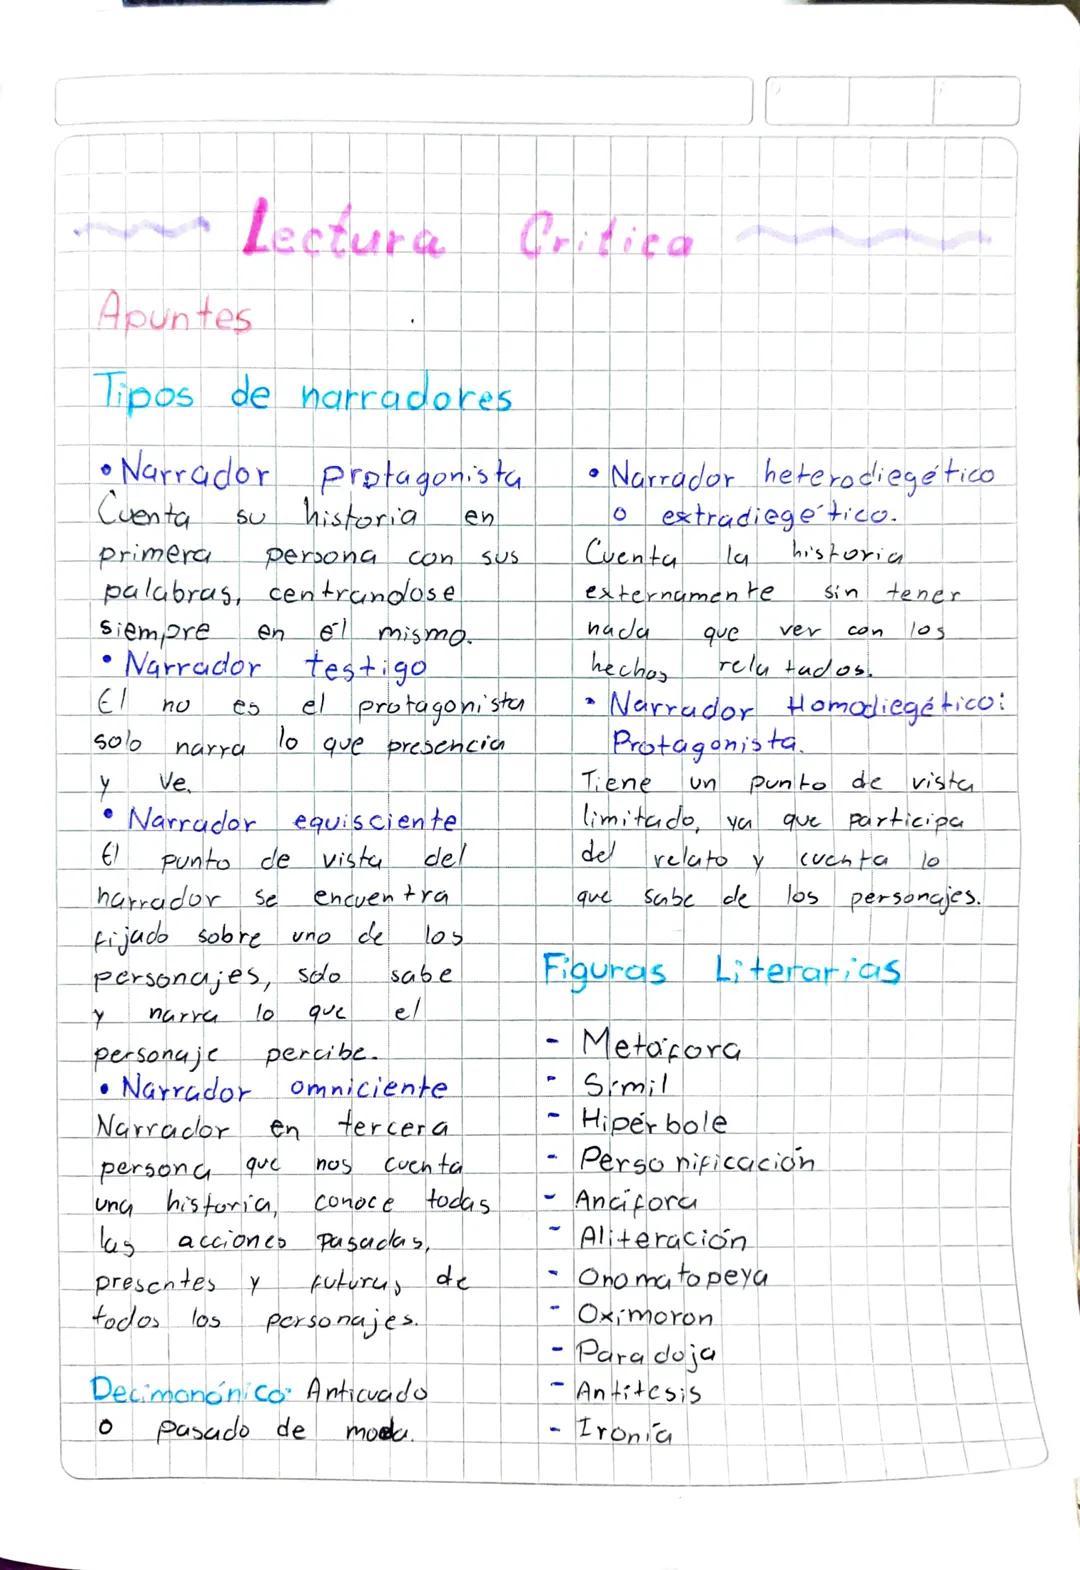 Lectura Critica
Apuntes
Tipos de narradores
• Narrador protagonista
Cuenta su historia en
primera persona con sus
palabras, centrandose
siempre en él mismo.
• Narrador testigo
El no es el protagonista
solo narra lo que presencia
y ve.
• Narrador equisciente
El punto de vista del
narrador se encuentra
fijado sobre uno de los
personajes, solo sabe
y narra lo que el
personaje percibe.
• Narrador omniciente
Narrador en tercera
persona que nos cuenta
una historia, conoce todas
las acciones pasadas,
presentes y futuras de
todos los personajes.
Decimonónico: Anticuado
o pasado de moda.
• Narrador heterodiegético
o extradiegético.
Cuenta la historia
externamente sin tener
nada que ver con los
hechos relatados.
• Narrador Homodiegético:
Protagonista.
Tiene un punto de vista
limitado, ya que participa
del relato y cuenta lo
que sabe de los personajes.
Figuras Literarias
- Metáfora
- Símil
- Hipérbole
- Personificación
- Anáfora
- Aliteración
- Onomatopeya
- Oxímoron
- Paradoja
- Antítesis
- Ironía